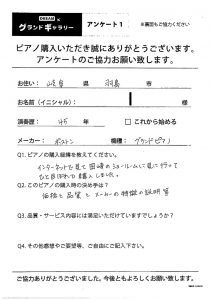 DREAM ×
グランドギャラリー
アンケート1
※裏面もご協力ください
ピアノ購入いただき誠にありがとうございます。
アンケートのご協力お願い致します。
お住い： 岐阜 県 羽島 市
お名前(イニシャル)：
演奏歴： 45 年 □ これから始める
メーカー： ボストン 機種： グランドピアノ
Q1. ピアノの購入経緯を教えてください。
インターネットで見て 岡崎のショールームに見に行って
ひとめぼれで購入しました。
Q2. このピアノの購入時の決め手は？
価格と品質とメーカーの特徴の説明等
Q3. 品質・サービス内容には満足いただけていますでしょうか？
Q4. その他感想やご要望等、ご自由にご記入下さい。
ご協力ありがとうございました。今後ともよろしくお願い致します。